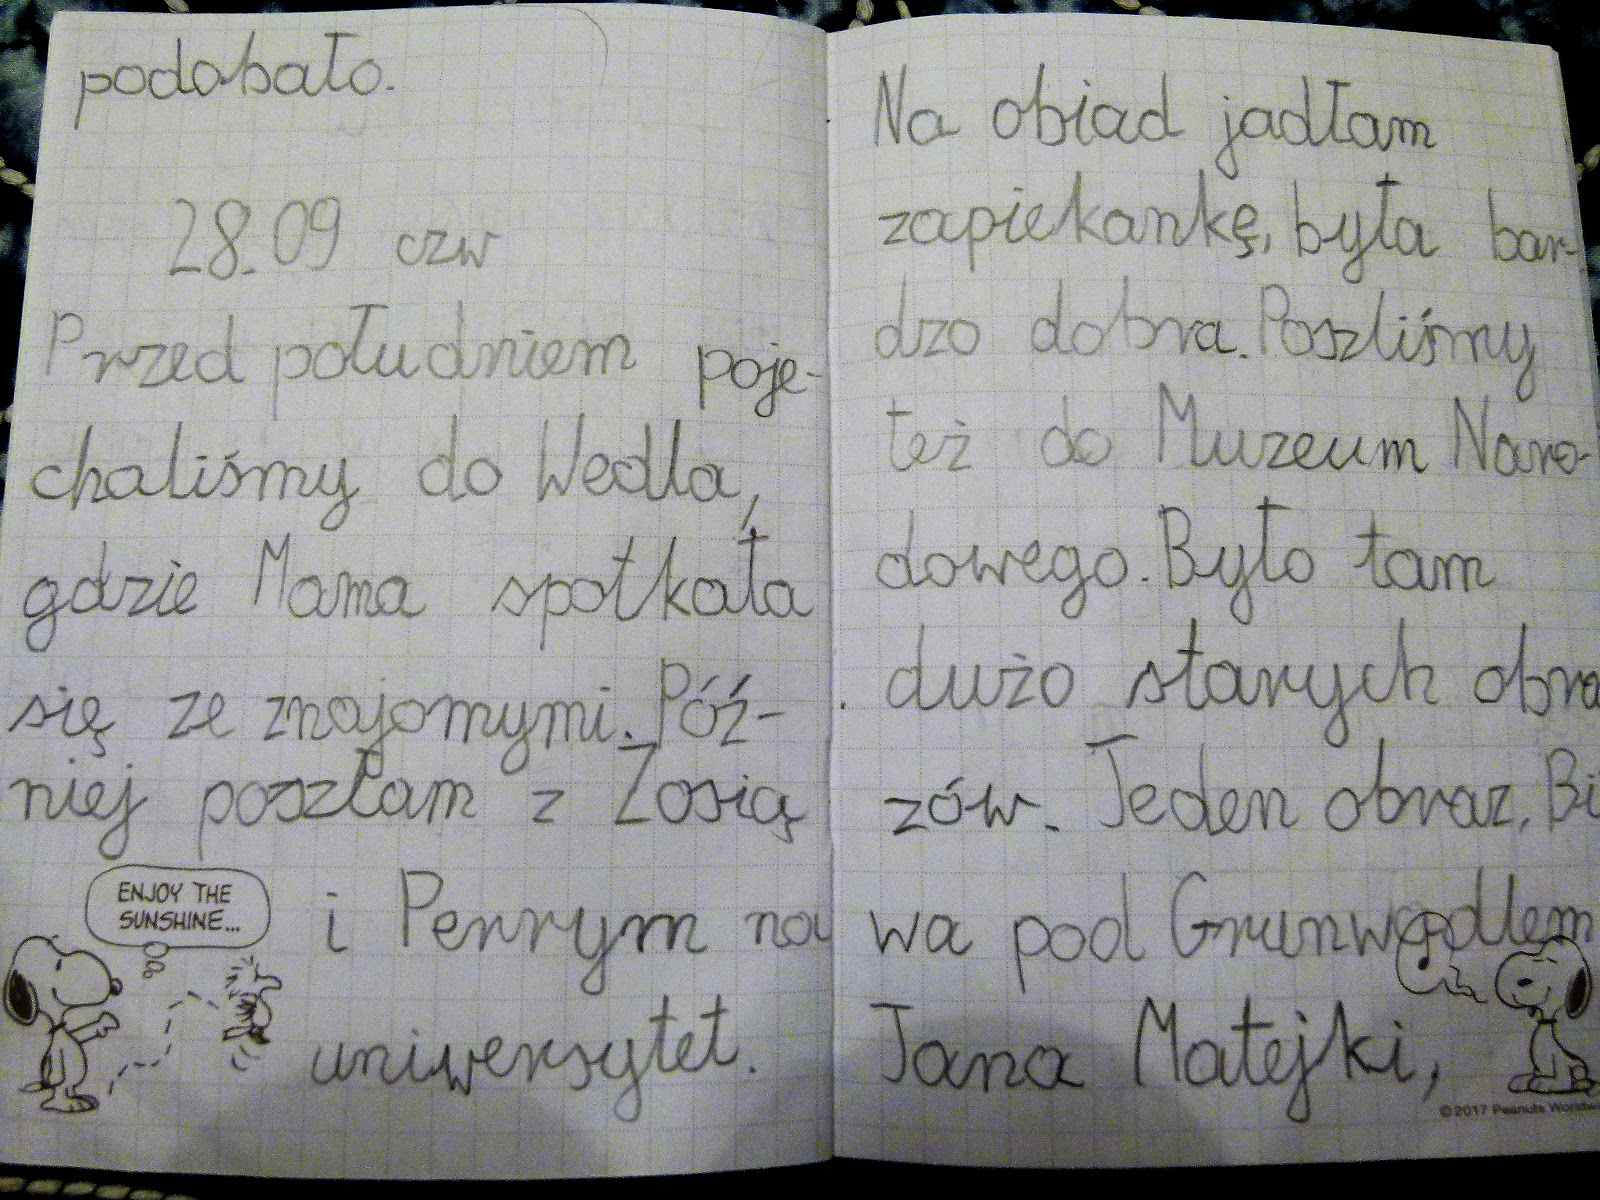 podobało.
28.09 czw
Przed południem poje-
chaliśmy do Wedla,
gdzie Mama spotkała
się ze znajomymi. Póź-
niej poszłam z Zosią
ENJOY THE
SUNSHINE...
i Perrym na
uniwersytet.
Na obiad jadłam
zapiekankę, była bar-
dzo dobra. Poszliśmy
też do Muzeum Naro-
dowego. Było tam
dużo starych obra
zów. Jeden obraz, Bi
wa pod Grunwadlem
Jana Matejki,
©2017 Peanuts